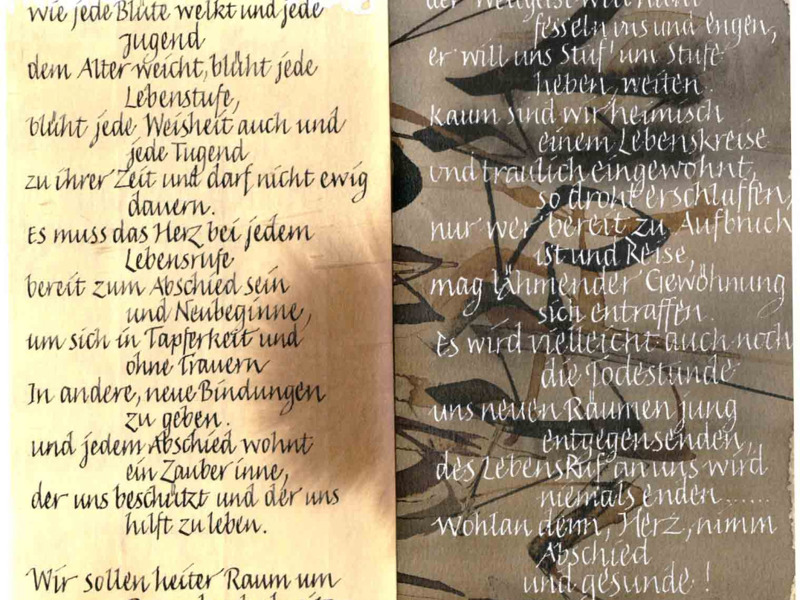 wie jede Blüte welkt und jede
Jugend
dem Alter weicht, blüht jede
Lebenstufe,
blüht jede Weisheit auch und
jede Tugend
zu ihrer Zeit und darf nicht ewig
dauern.
Es muss das Herz bei jedem
Lebensrufe
bereit zum Abschied sein
und Neubeginne,
um sich in Tapferkeit und
ohne Trauern
In andere, neue Bindungen
zu geben.
und jedem Abschied wohnt
ein Zauber inne,
der uns beschützt und der uns
hilft zu leben.
Wir sollen heiter Raum um
der Weltgeist will nicht
fesseln uns und engen,
er will uns Stuf' um Stufe
heben, weiten.
kaum sind wir heimisch
einem Lebenskreise
und traulich eingewohnt,
so droht erschlaffen,
nur wer bereit zu Aufbruch
ist und Reise,
mag lähmender Gewöhnung
sich entraffen.
Es wird vielleicht auch noch
die Todestunde
uns neuen Räumen jung
entgegensenden,
des Lebens Ruf an uns wird
niemals enden......
Wohlan denn, Herz, nimm
Abschied
und gesunde!